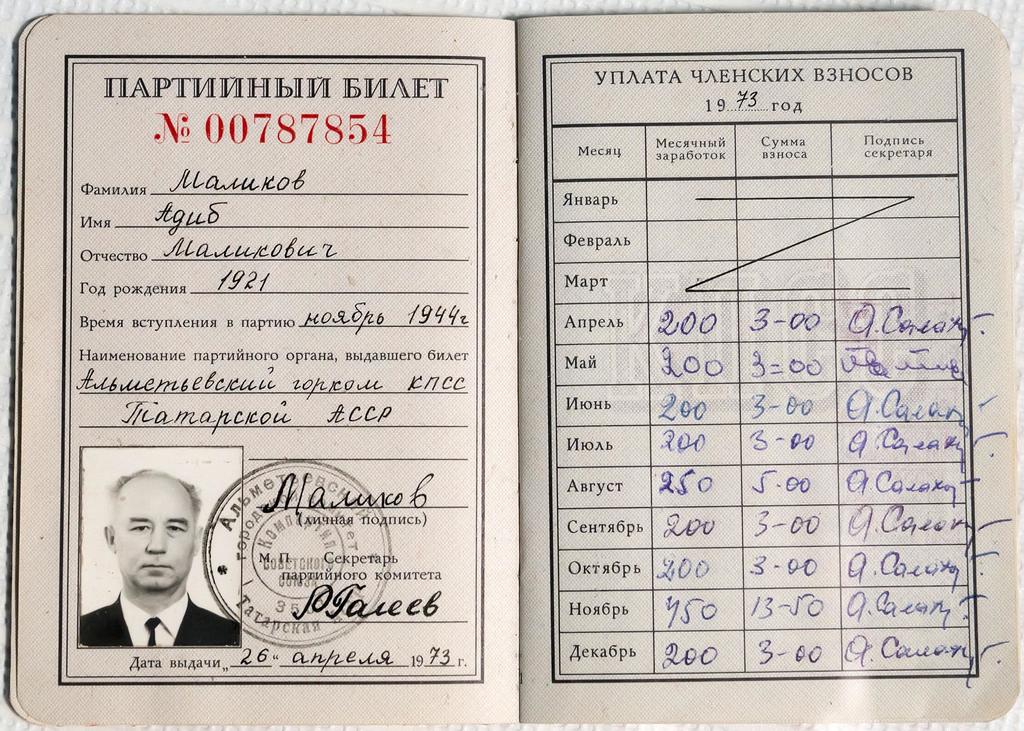 ПАРТИЙНЫЙ БИЛЕТ
№ 00787854
Фамилия Маликов
Имя Адиб
Отчество Маликович
Год рождения 1921
Время вступления в партию ноябрь 1944г
Наименование партийного органа, выдавшего билет
Альметьевский горком КПСС
Татарской АССР
Маликов
(личная подпись)
М. П. Секретарь
партийного комитета
РГалеев
Дата выдачи „26" апреля 1973 г.
УПЛАТА ЧЛЕНСКИХ ВЗНОСОВ
1973 год
Месяц Месячный заработок Сумма взноса Подпись секретаря
Январь
Февраль
Март
Апрель 200 3-00
Май 200 3=00
Июнь 200 3-00
Июль 200 3-00
Август 250 5-00
Сентябрь 200 3-00
Октябрь 200 3-00
Ноябрь 450 13-50
Декабрь 200 3-00